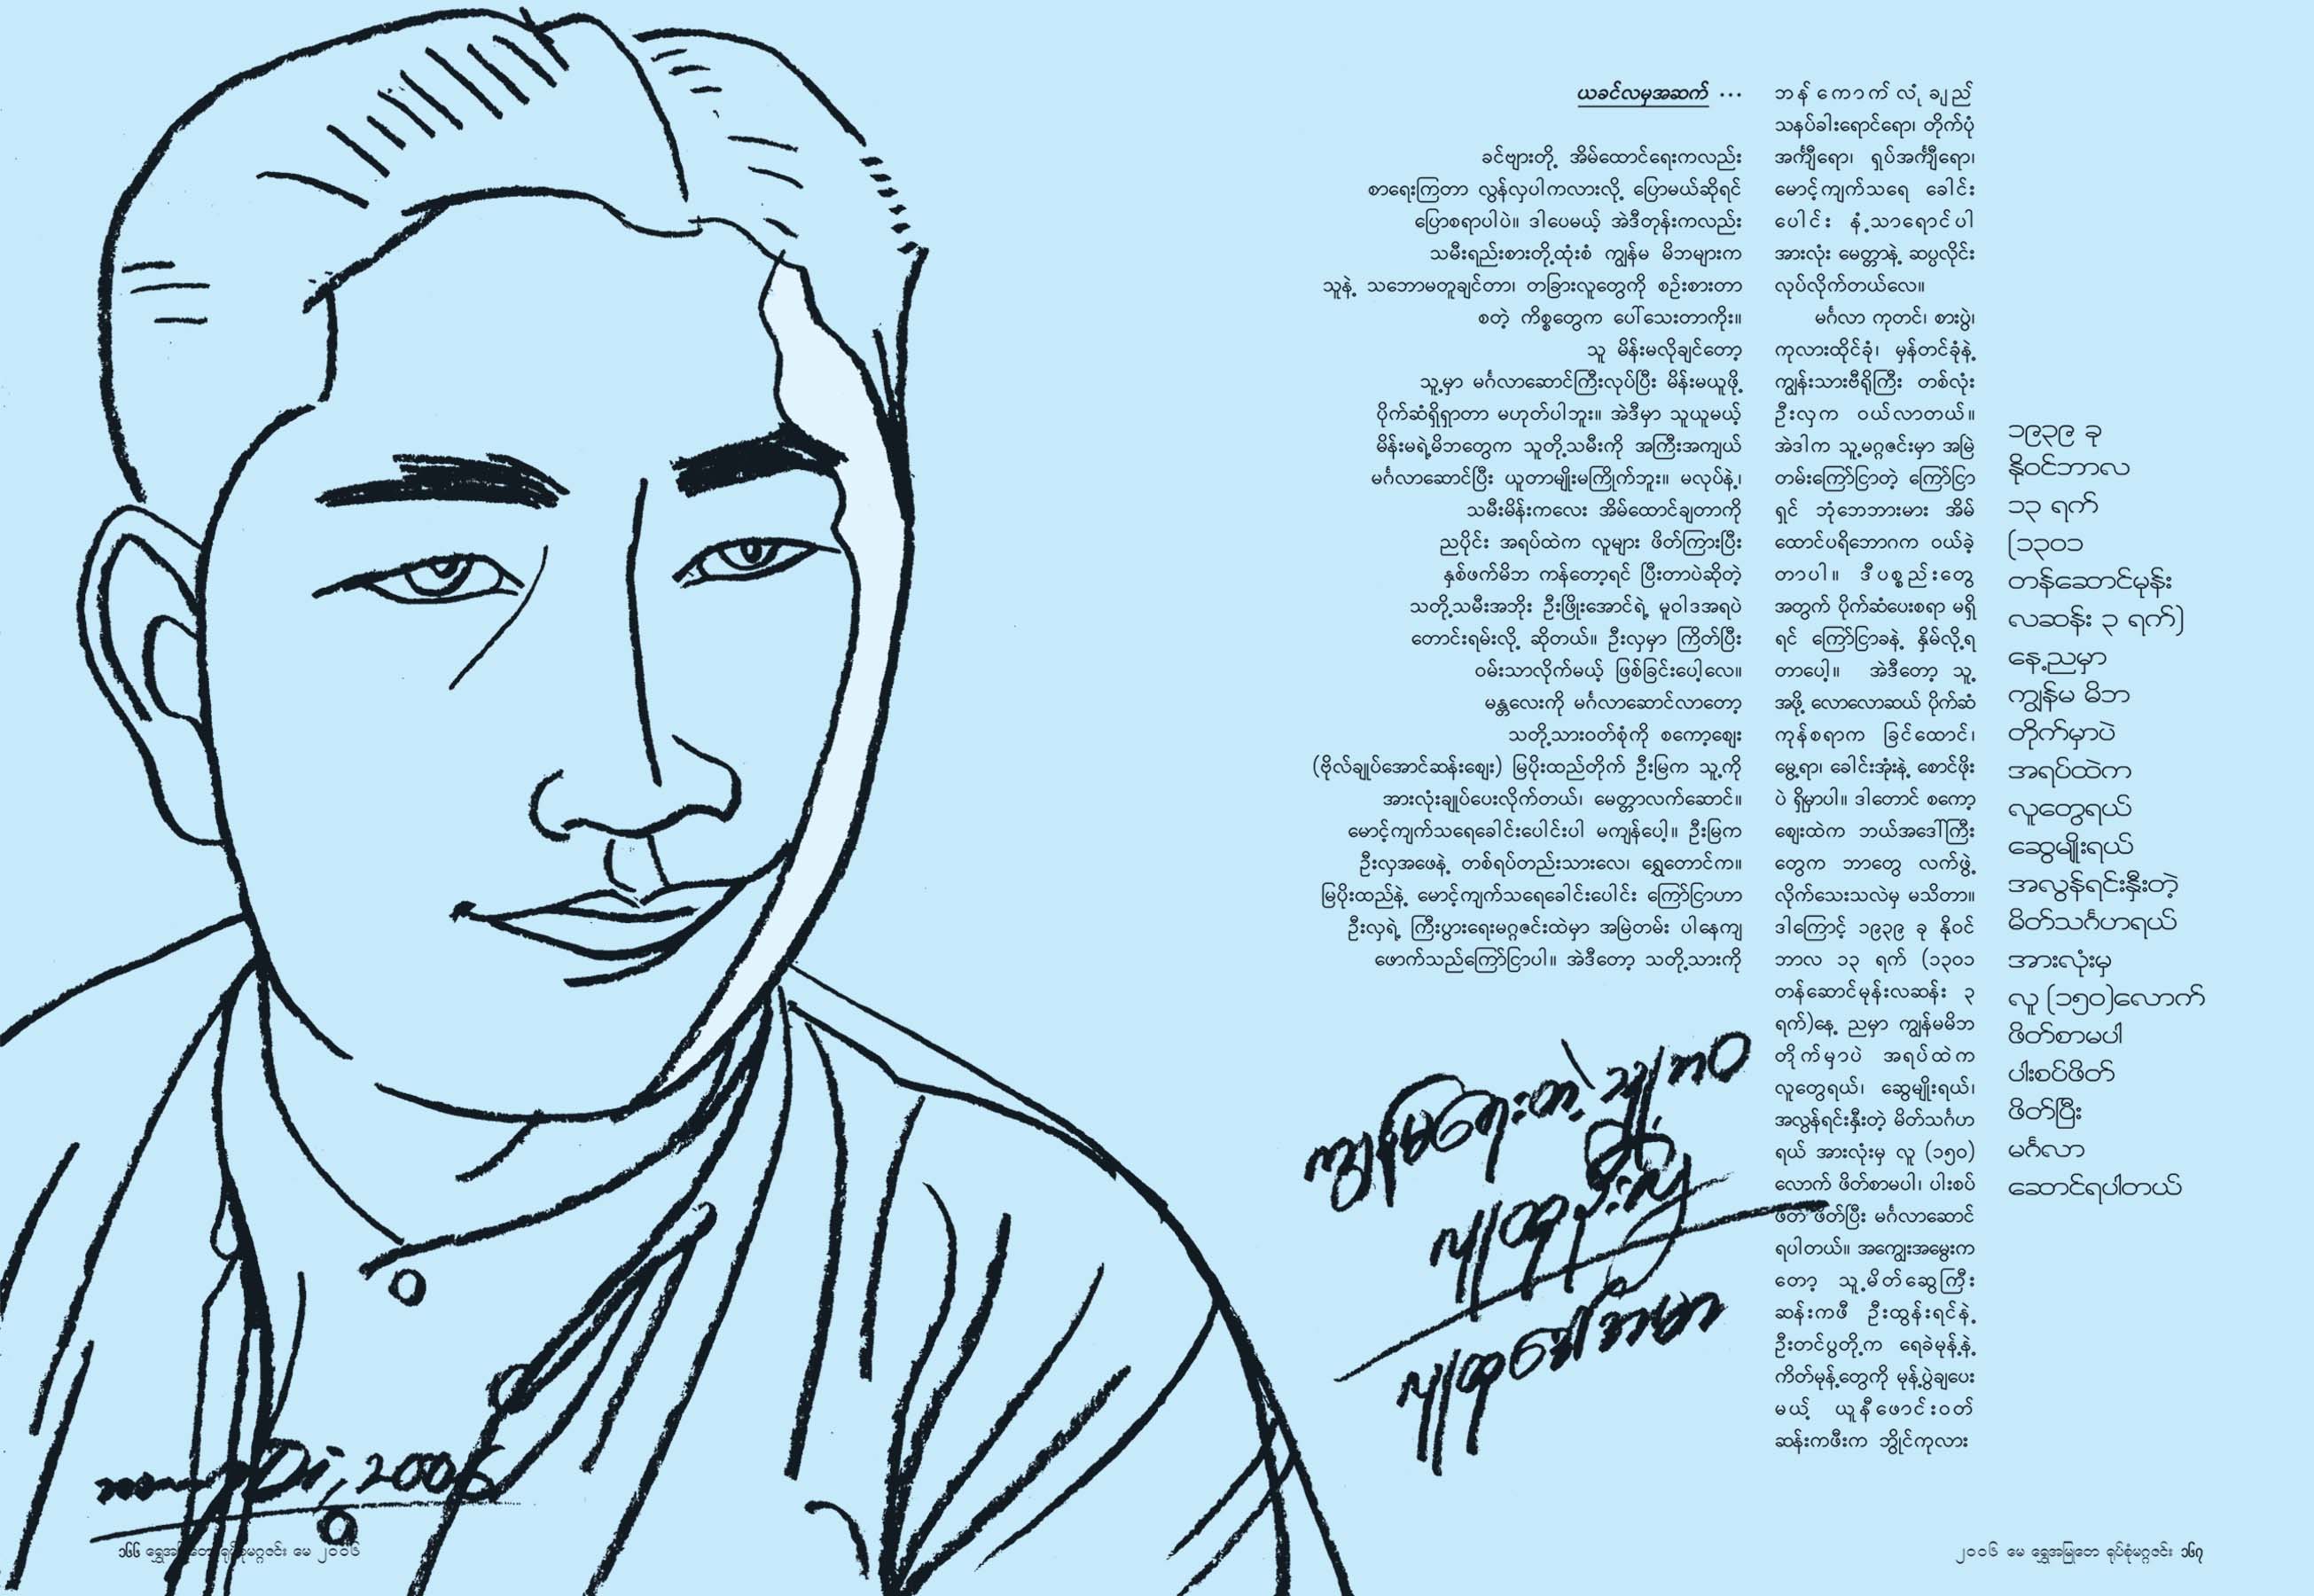 ယခင်လမှအဆက် ...
ခင်ဗျားတို့ အိမ်ထောင်ရေးကလည်း
စာရေးကြတာ လွန်လှပါကလားလို့ ပြောမယ်ဆိုရင်
ပြောစရာပါပဲ။ ဒါပေမယ့် အဲဒီတုန်းကလည်း
သမီးရည်းစားတို့ထုံးစံ ကျွန်မ မိဘများက
သူနဲ့ သဘောမတူချင်တာ၊ တခြားလူတွေကို စဉ်းစားတာ
စတဲ့ ကိစ္စတွေက ပေါ်သေးတာကိုး။
သူ မိန်းမလိုချင်တော့
သူ့မှာ မင်္ဂလာဆောင်ကြီးလုပ်ပြီး မိန်းမယူဖို့
ပိုက်ဆံရှိရှာတာ မဟုတ်ပါဘူး။ အဲဒီမှာ သူယူမယ့်
မိန်းမရဲ့မိဘတွေက သူတို့သမီးကို အကြီးအကျယ်
မင်္ဂလာဆောင်ပြီး ယူတာမျိုးမကြိုက်ဘူး။ မလုပ်နဲ့၊
သမီးမိန်းကလေး အိမ်ထောင်ချတာကို
ညပိုင်း အရပ်ထဲက လူများ ဖိတ်ကြားပြီး
နှစ်ဖက်မိဘ ကန်တော့ရင် ပြီးတာပဲဆိုတဲ့
သတို့သမီးအဘိုး ဦးဖြိုးအောင်ရဲ့ မူဝါဒအရပဲ
တောင်းရမ်းလို့ ဆိုတယ်။ ဦးလှမှာ ကြိတ်ပြီး
ဝမ်းသာလိုက်မယ့် ဖြစ်ခြင်းပေါ့လေ။
မန္တလေးကို မင်္ဂလာဆောင်လာတော့
သတို့သားဝတ်စုံကို စကော့ဈေး
(ဗိုလ်ချုပ်အောင်ဆန်းဈေး) မြပိုးထည်တိုက် ဦးမြက သူ့ကို
အားလုံးချုပ်ပေးလိုက်တယ်၊ မေတ္တာလက်ဆောင်။
မောင့်ကျက်သရေခေါင်းပေါင်းပါ မကျန်ပေါ့။ ဦးမြက
ဦးလှအဖေနဲ့ တစ်ရပ်တည်းသားလေ၊ ရွှေတောင်က။
မြပိုးထည်နဲ့ မောင့်ကျက်သရေခေါင်းပေါင်း ကြော်ငြာဟာ
ဦးလှရဲ့ ကြီးပွားရေးမဂ္ဂဇင်းထဲမှာ အမြဲတမ်း ပါနေကျ
ဖောက်သည်ကြော်ငြာပါ။ အဲဒီတော့ သတို့သားကို
ဘန်ကောက်လုံချည်
သနပ်ခါးရောင်ရော၊ တိုက်ပုံ
အင်္ကျီရော၊ ရှပ်အင်္ကျီရော၊
မောင့်ကျက်သရေ ခေါင်း
ပေါင်း နံ့သာရောင်ပါ
အားလုံး မေတ္တာနဲ့ ဆပ္ပလိုင်း
လုပ်လိုက်တယ်လေ။
မင်္ဂလာ ကုတင်၊ စားပွဲ၊
ကုလားထိုင်ခုံ၊ မှန်တင်ခုံနဲ့
ကျွန်းသားဗီရိုကြီး တစ်လုံး
ဦးလှက ဝယ်လာတယ်။
အဲဒါက သူ့မဂ္ဂဇင်းမှာ အမြဲ
တမ်းကြော်ငြာတဲ့ ကြော်ငြာ
ရှင် ဘုံဘေဘားမား အိမ်
ထောင်ပရိဘောဂက ဝယ်ခဲ့
တာပါ။ ဒီပစ္စည်းတွေ
အတွက် ပိုက်ဆံပေးစရာ မရှိ
ရင် ကြော်ငြာခနဲ့ နှိမ်လို့ရ
တာပေါ့။ အဲဒီတော့ သူ့
အဖို့ လောလောဆယ် ပိုက်ဆံ
ကုန်စရာက ခြင်ထောင်၊
မွေ့ရာ၊ ခေါင်းအုံးနဲ့ စောင်ဖိုး
ပဲ ရှိမှာပါ။ ဒါတောင် စကော့
ဈေးထဲက ဘယ်အဒေါ်ကြီး
တွေက ဘာတွေ လက်ဖွဲ့
လိုက်သေးသလဲမှ မသိတာ။
ဒါကြောင့် ၁၉၃၉ ခု နိုဝင်
ဘာလ ၁၃ ရက် (၁၃၀၁
တန်ဆောင်မုန်းလဆန်း ၃
ရက်)နေ့ ညမှာ ကျွန်မမိဘ
တိုက်မှာပဲ အရပ်ထဲက
လူတွေရယ်၊ ဆွေမျိုးရယ်၊
အလွန်ရင်းနှီးတဲ့ မိတ်သင်္ဂဟ
ရယ် အားလုံးမှ လူ (၁၅၀)
လောက် ဖိတ်စာမပါ၊ ပါးစပ်
ဖိတ် ဖိတ်ပြီး မင်္ဂလာဆောင်
ရပါတယ်။ အကျွေးအမွေးက
တော့ သူ့မိတ်ဆွေကြီး
ဆန်းကဖီ ဦးထွန်းရင်နဲ့
ဦးတင်ပွတို့က ရေခဲမုန့်နဲ့
ကိတ်မုန့်တွေကို မုန့်ပွဲချပေး
မယ့် ယူနီဖောင်းဝတ်
ဆန်းကဖီးက ဘွိုင်ကုလား
၁၉၃၉ ခု
နိုဝင်ဘာလ
၁၃ ရက်
(၁၃၀၁
တန်ဆောင်မုန်း
လဆန်း ၃ ရက်)
နေ့ညမှာ
ကျွန်မ မိဘ
တိုက်မှာပဲ
အရပ်ထဲက
လူတွေရယ်
ဆွေမျိုးရယ်
အလွန်ရင်းနှီးတဲ့
မိတ်သင်္ဂဟရယ်
အားလုံးမှ
လူ (၁၅၀)လောက်
ဖိတ်စာမပါ
ပါးစပ်ဖိတ်
ဖိတ်ပြီး
မင်္ဂလာ
ဆောင်ရပါတယ်
ကျွန်မရေးတဲ့ သူ့ဘဝ
လူထုဦးလှ
လူထုဒေါ်အမာ
2006
၁၆၆ ရွှေအမြုတေ ရုပ်စုံမဂ္ဂဇင်း မေ ၂၀၀၆
၂၀၀၆ မေ ရွှေအမြုတေ ရုပ်စုံမဂ္ဂဇင်း ၁၆၇